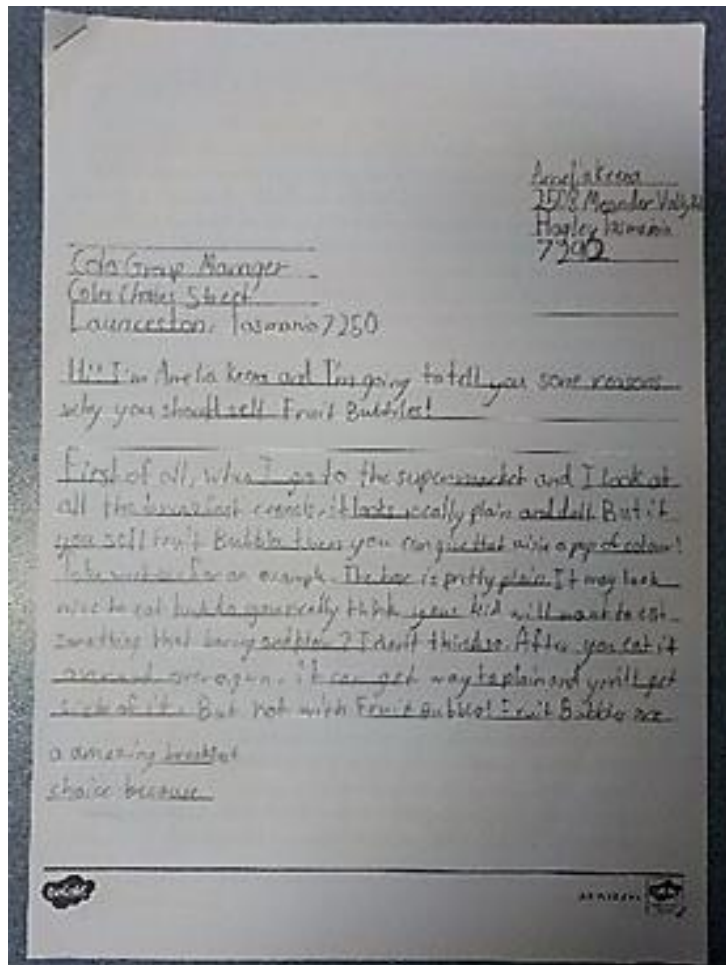 Amelia Keena
2508 Meander Vally Rd
Hagley Tasmania
7292
Coles Group Manager
Coles Charles Street
Launceston, Tasmania 7250
Hi! I'm Amelia Keena and I'm going to tell you some reasons
why you should sell Fruit Bubbles!
First of all, when I go to the supermarket and I look at
all the breakfast cereals it looks really plain and dull. But if
you sell Fruit Bubbles then you can give that aisle a pop of colour!
Take for an example. The box is pretty plain. It may look
nice to eat but do you really think your kid will want to eat
something that boring and plain? I don't think so. After you eat it
over and over again, it can get way to plain and you'll get
sick of it. But not with Fruit Bubbles! Fruit Bubbles are
a amazing breakfast
choice because
twinkl